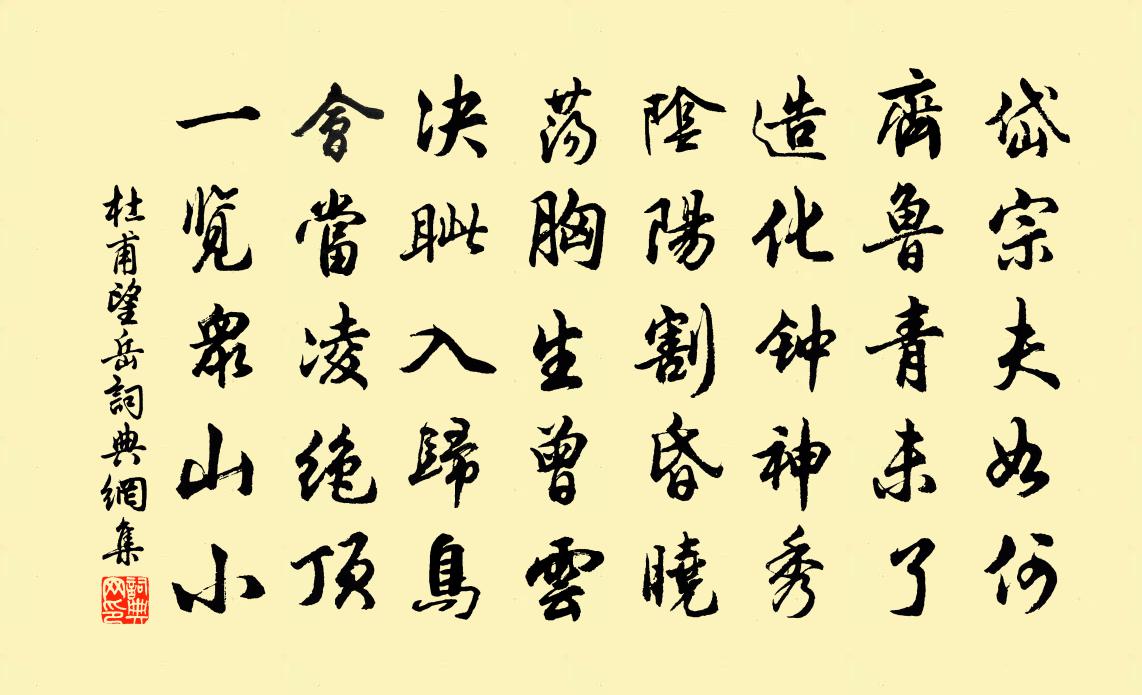 岱宗夫如何
齊魯青未了
造化钟神秀
陰陽割昏曉
蕩胸生曾雲
決眦入歸鳥
會當凌绝顶
一览眾山小
杜甫望岳詞典網集
詞典网印